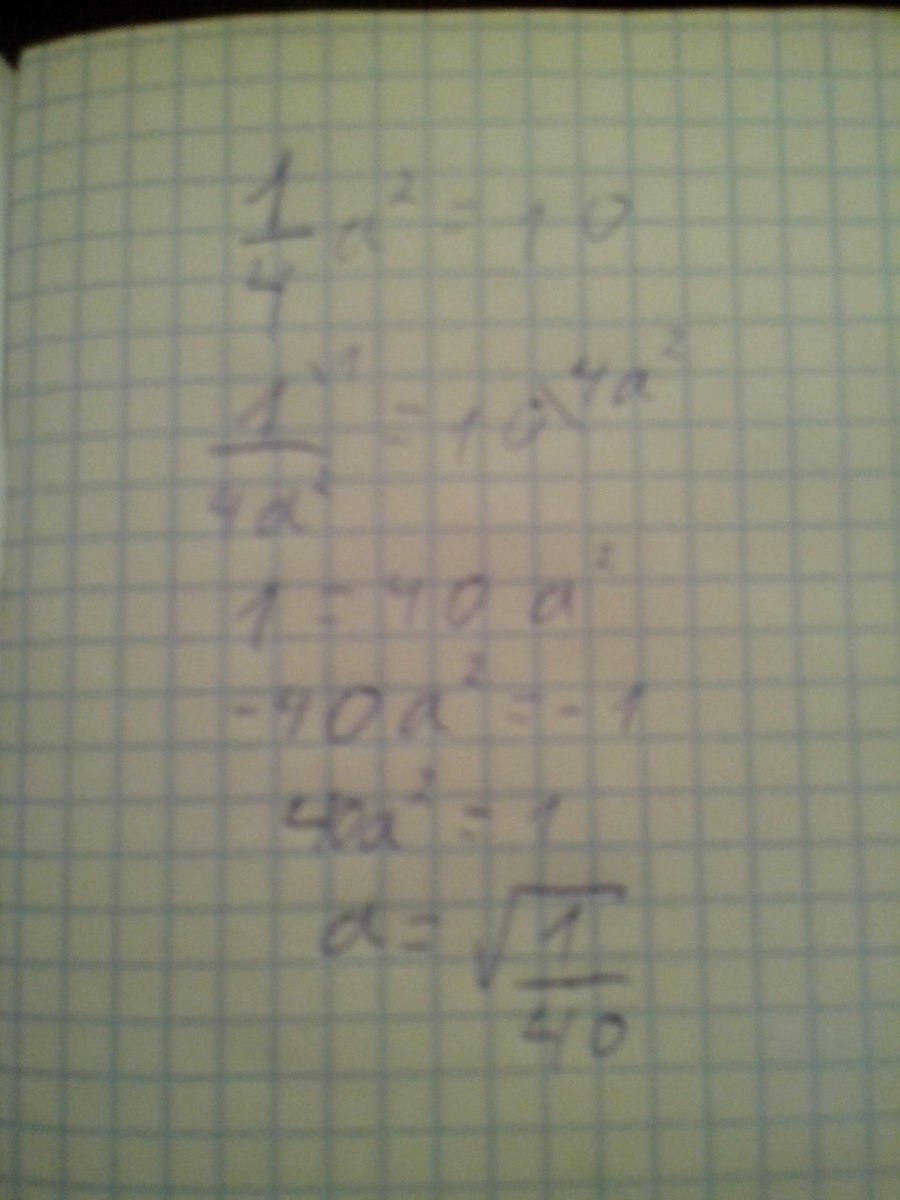 1/4 a² = 10
1\1/4a² = 10\4a²
1 = 40 a²
-40a² = -1
40a² = 1
a = √1/40